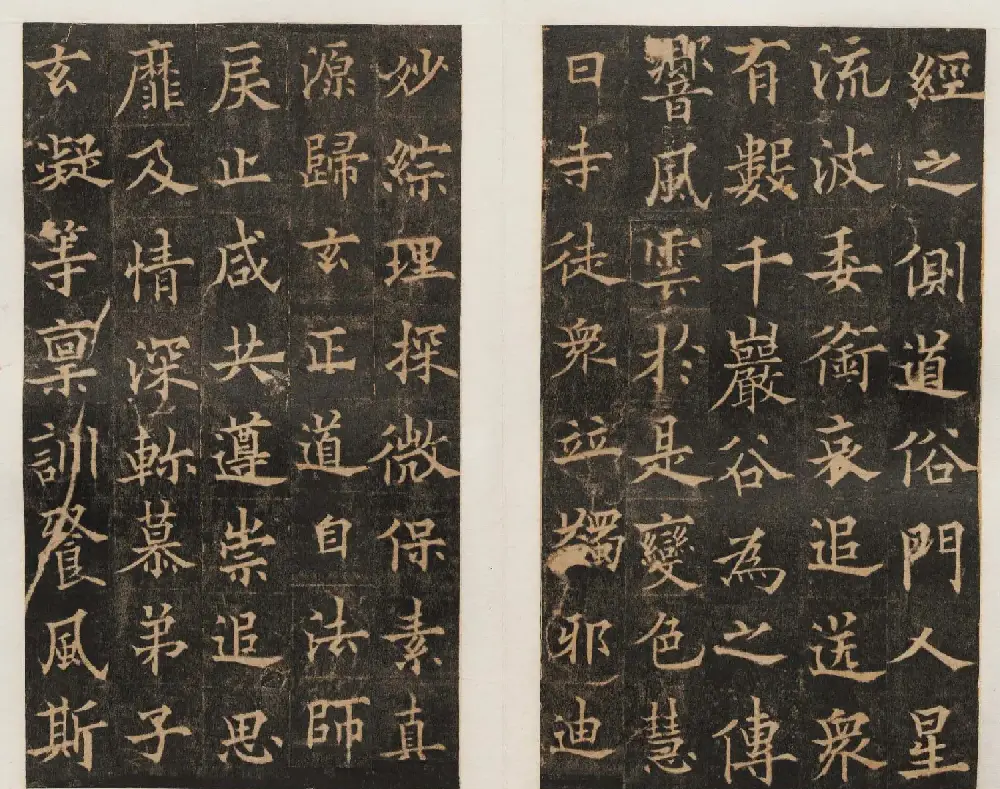 經之側道俗門人星
流波委銜哀追送衆
有數千巖谷為之傳
響風雲於是變色慧
日寺徒衆竝蠲邪迪
妙綜理探微保素真
源歸玄正道自法師
戾止咸共遵崇追思
靡及情深軫慕弟子
玄凝等稟訓餐風斯